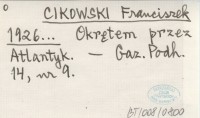 CIKOWSKI Franciszek
1926... Okrętem przez
Atlantyk. – Gaz. Podh.
14, nr 9.